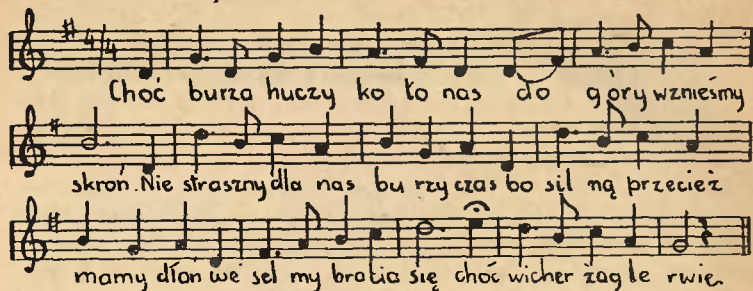 4/4
Choć burza huczy ko ło nas do góry wznieśmy
skroń. Nie straszny dla nas bu rzy czas bo sil ną przecież
mamy dłoń we sel my bracia się choć wicher żag le rwie.